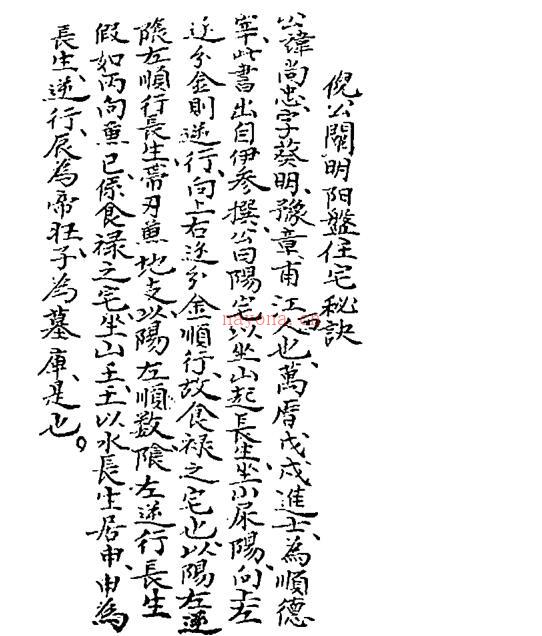 倪公闡明阳盤住宅秘訣
公諱尚忠字葵明豫章甫江人也萬曆戊戌進士為順德
宰此書出自伊參撰公曰陽宅以坐山起長生坐山屎陽向上左
逆分金則逆行向上右逆分金順行故食禄之宅也以陽左逆
陰左順行長生帶刃兼地支以陽左順数陰左逆行長生
假如丙向兼巳係食禄之宅坐山壬壬以水長生居申申為
長生逆行辰為帝旺子為墓庫是也
nayona.cn